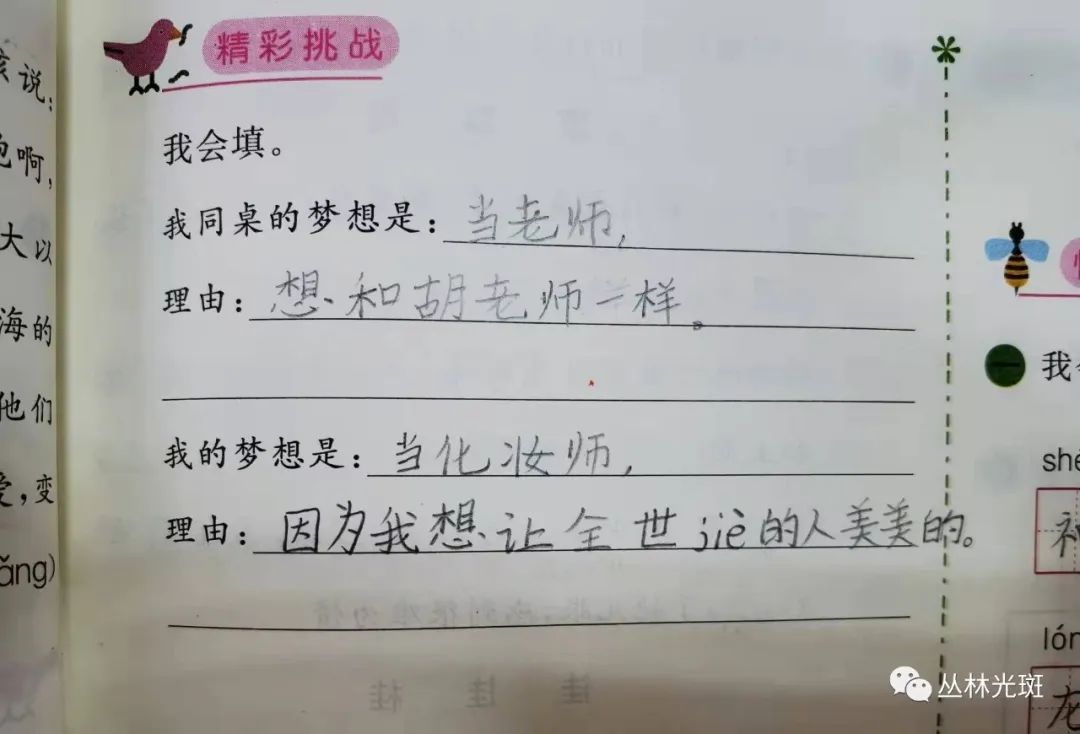 精彩挑战
我会填。
我同桌的梦想是：当老师，
理由：想和胡老师一样。
我的梦想是：当化妆师，
理由：因为我想让全世jiè的人美美的。
说：
啊，
大以
海的
他们
，变
ǎng)
我
lón
龙
丛林光斑